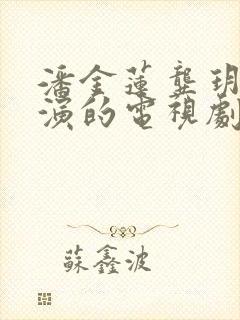 潘金蓮龔玥
演的電視劇
蘇鑫波